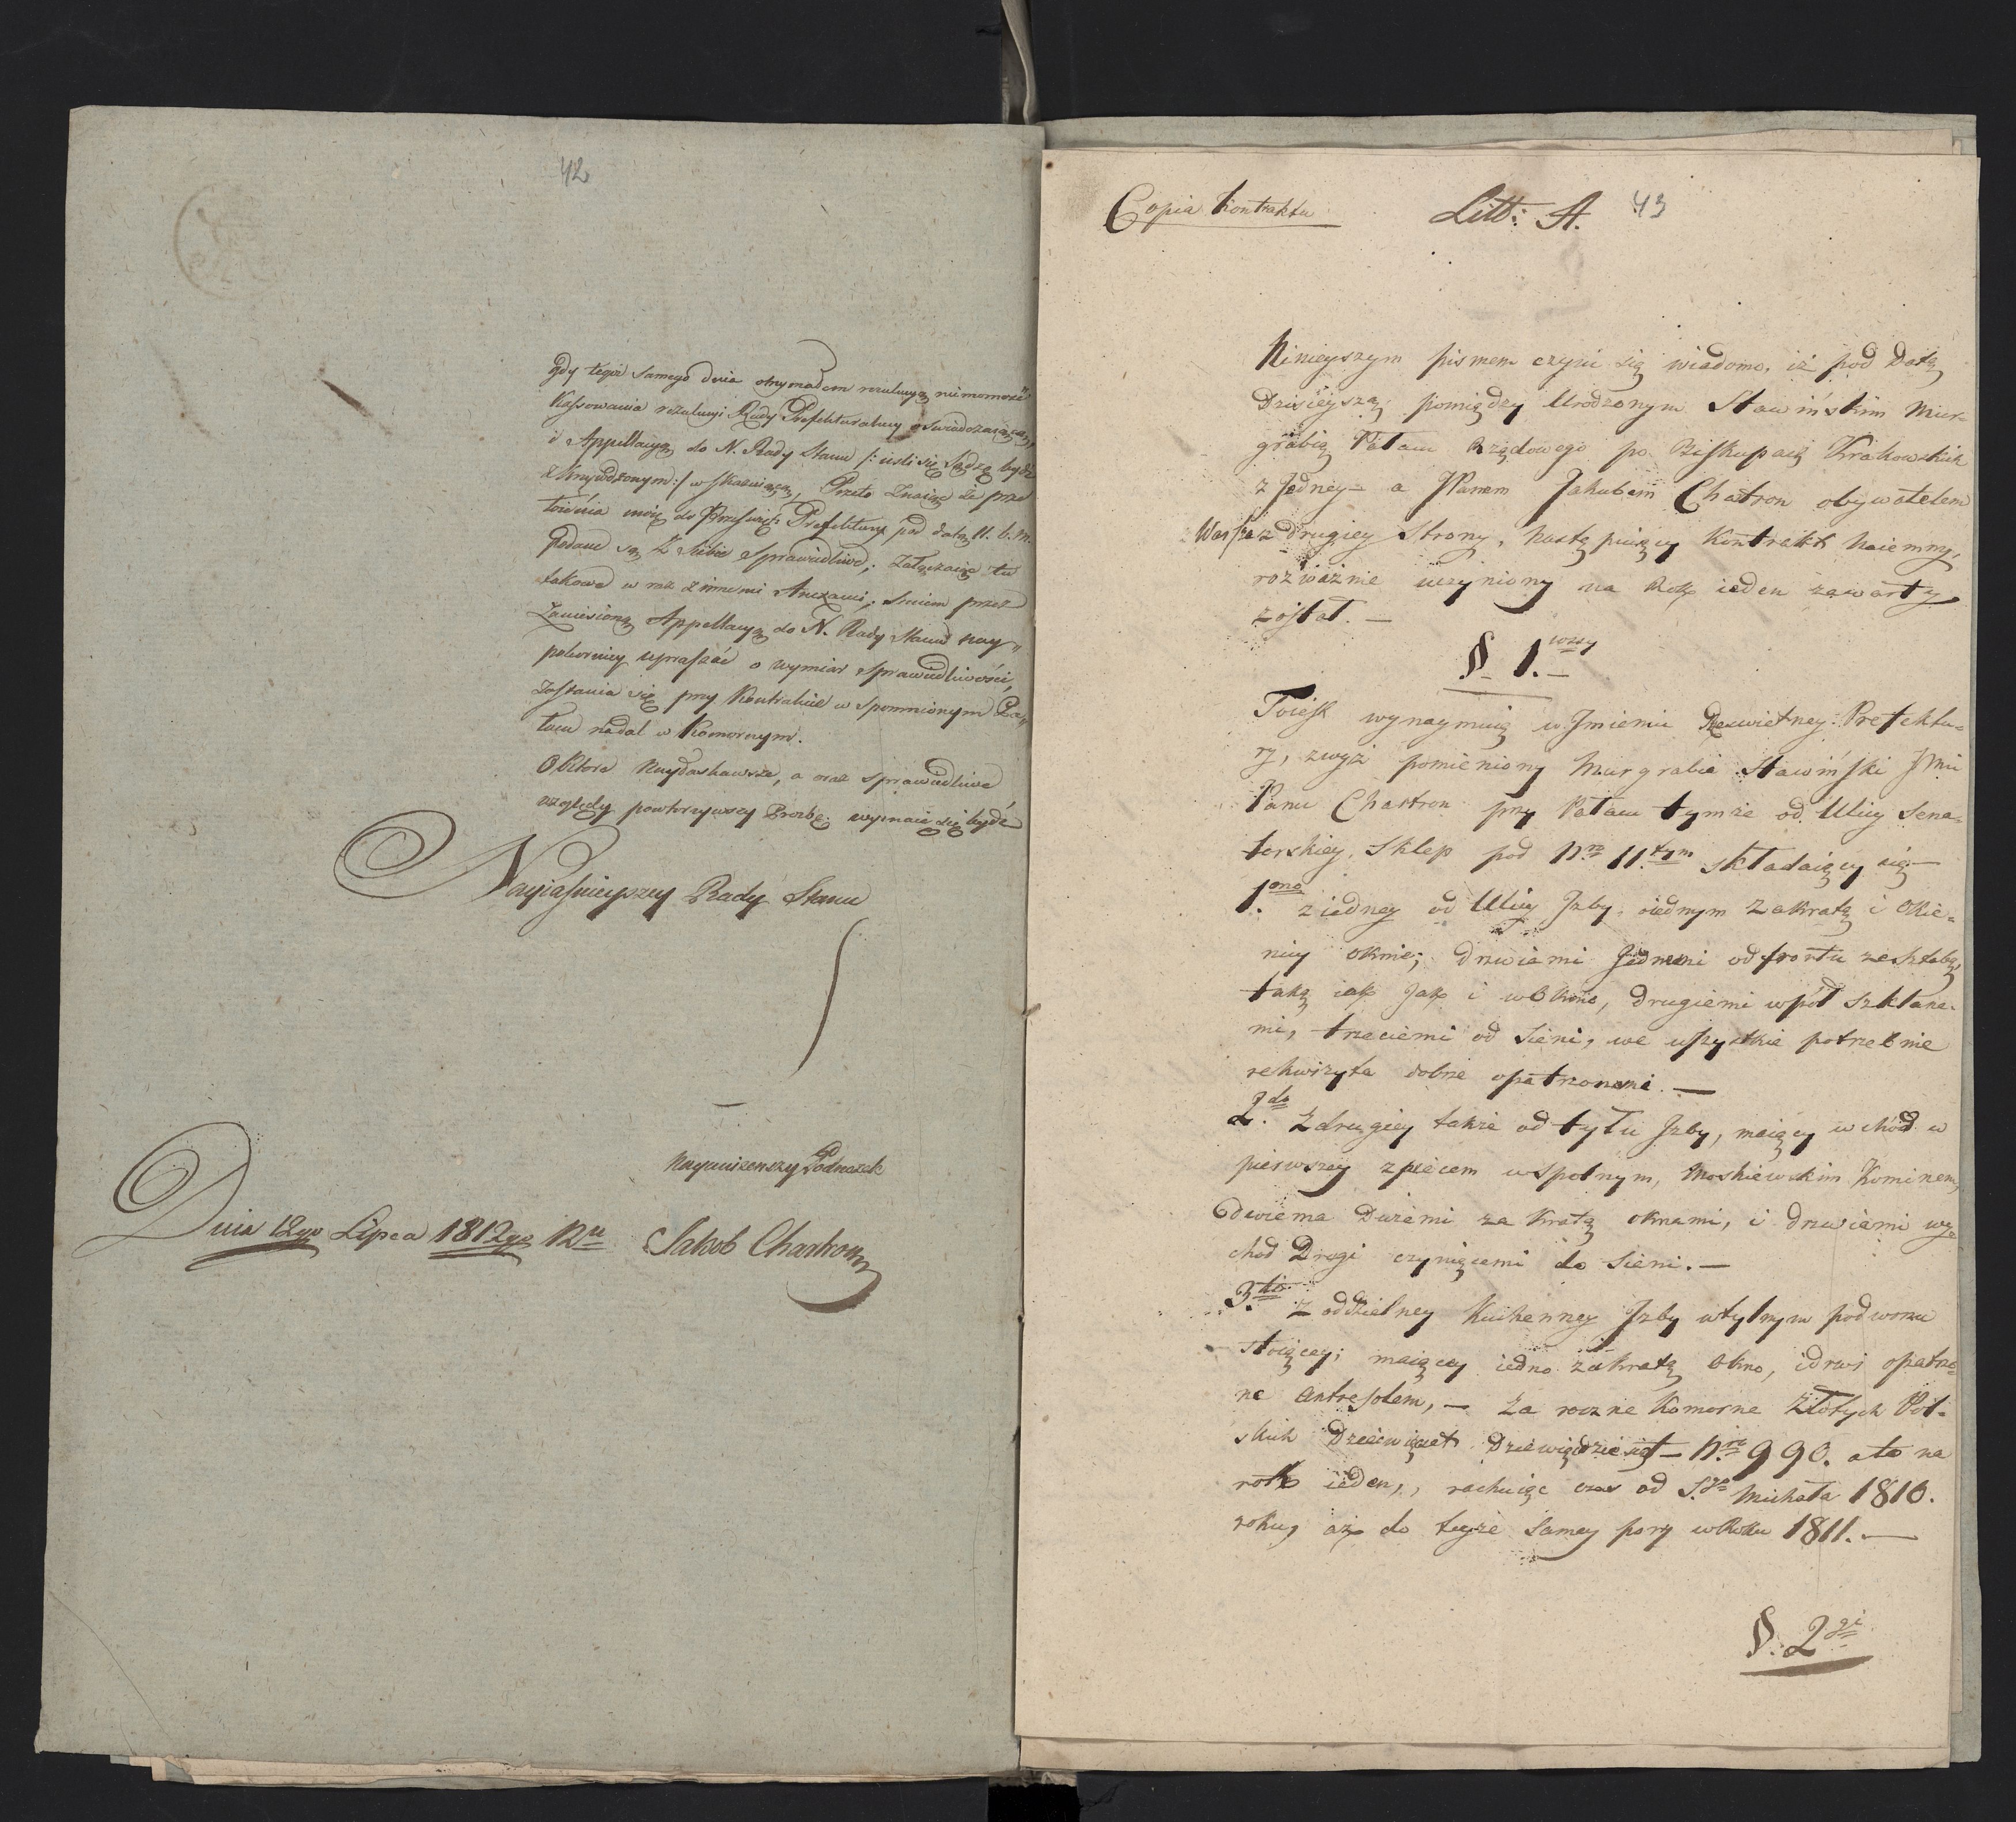 42
gdy tegoż samego dnia otrzymałem rezolucyą niemożność
Kassowania rezolucyi Rady Prefekturalney oświadczaiącą,
i Appellacyą do N. Rady Stanu /: ieśli się sądzę bydź
skrzywdzonym :/ wskazuiącą, Przeto Znaiąc że prze
łożenia moie do Prześwięt: Prefektury pod datą 11. b. m.
podane są z siebie sprawiedliwe; załączaiąc tu
takowe w raz z innemi Anexami, śmiem przez
Zaniesioną Appellacyą do N. Rady Stanu nay„
pokorniey upraszać o wymiar sprawiedliwości,
zostania się przy Kontrakcie w spomnionym Pa„
łacu nadal w Komornym.
O Które Nayłaskawsze, a oraz sprawiedliwe
względy powtórzywszy Prozbę wyznaię się bydź
Nayiaśnieyszey Rady Stanu
Nayuniżenszy Podnożek
Dnia 12go Lipca 1812go Rn Jakob Chartron
Copia Kontraktu Litt: A. 43
Ninieyszym pismem czyni się wiadomo, iż pod Datą
Dzisieyszą pomiędzy Urodzonym Stawińskim Mur=
grabią Pałacu Rządowego po Biskupach Krakowskich
z Jedney= a JPanem Jakubem Chatron obywatelem
z drugiey Strony, następuiący Kontrakt Naiemny,
rozważnie uczyniony na Rok ieden zawarty
został. —
§ 1. wszy
Toiest wynaymuią w Jmieniu Prefektu=
ry, zwyż pomieniony Murgrabia Stawiński JMu
Panu Chartron przy Pałacu tymże od Ulicy Sena=
torskiey, Sklep pod Nro 11.tym składaiący się —
1.mo z iedney od Ulicy Jzby, iednym za kratą i Okie=
nicy oknie; drzwiami Jednemi od frontu ze sztabą
taką iak Jak i w Oknie, drugiemi wpół szklane.
mi, trzeciemi od Sieni, we wszystkie potrzebnie
rekwizyta dobrze opatrzonemi. —
2.do Z drugiey także od tyłu Jzby, maiący wchód w
pierwszey z piecem wspolnym, Moskiewskim Kominem,
dwiema Dużemi za Kratą oknami, i drzwiami wy=
chod Drugi czyniącemi do Sieni. —
3.tio Z oddzielney Kuchenney Jzby w tylnym podworzu
stoiącey; maiącey iedno za kratą Okno, i drzwi opatrzo
ne antresolem, — Za roczne Komorne Złotych Pol=
skich Dziewięćset Dziewięćdziesiąt — Nro 990. a to na
rok ieden, rachuiąc czas od S.go Michała 1810.
roku, aż do teyże samey pory w Roku 1811. —
§. 2gi